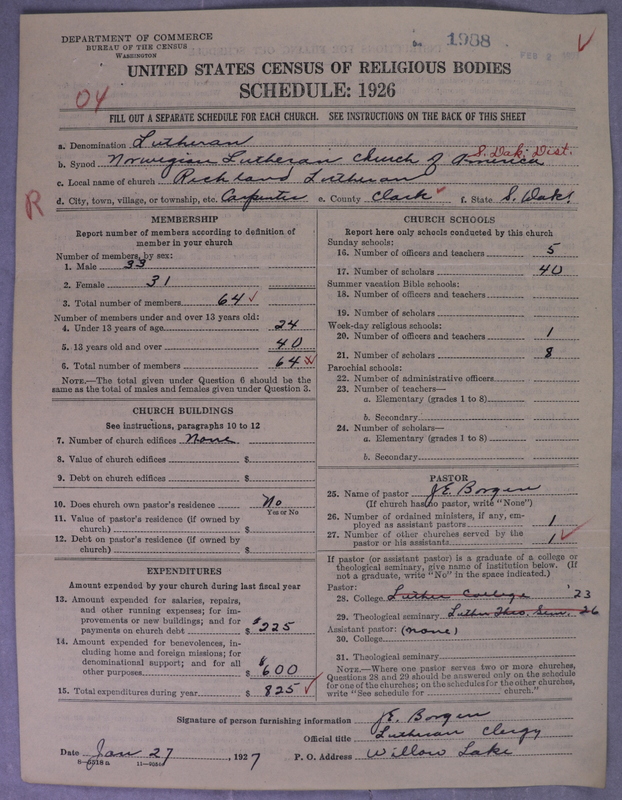 DEPARTMENT OF COMMERCE
BUREAU OF THE CENSUS
WASHINGTON
1988
FEB 2
UNITED STATES CENSUS OF RELIGIOUS BODIES
SCHEDULE: 1926
04
FILL OUT A SEPARATE SCHEDULE FOR EACH CHURCH. SEE INSTRUCTIONS ON THE BACK OF THIS SHEET
a. Denomination Lutheran
S. Dak. Dist.
b. Synod Norwegian Lutheran Church of America
c. Local name of church Richland Lutheran
R
d. City, town, village, or township, etc. Carpenter e. County Clark f. State S. Dak.
MEMBERSHIP
Report number of members according to definition of
member in your church
Number of members, by sex:
1. Male 33
2. Female 31
3. Total number of members 64
Number of members under and over 13 years old:
4. Under 13 years of age 24
5. 13 years old and over 40
6. Total number of members 64
NOTE.—The total given under Question 6 should be the
same as the total of males and females given under Question 3.
CHURCH BUILDINGS
See instructions, paragraphs 10 to 12
7. Number of church edifices None
8. Value of church edifices $
9. Debt on church edifices $
10. Does church own pastor's residence No
Yes or No
11. Value of pastor's residence (if owned by
church) $
12. Debt on pastor's residence (if owned by
church) $
EXPENDITURES
Amount expended by your church during last fiscal year
13. Amount expended for salaries, repairs,
and other running expenses; for im-
provements or new buildings; and for
payments on church debt $ $225
14. Amount expended for benevolences, in-
cluding home and foreign missions; for
denominational support; and for all
other purposes $ $600
15. Total expenditures during year $ 825
CHURCH SCHOOLS
Report here only schools conducted by this church
Sunday schools:
16. Number of officers and teachers 5
17. Number of scholars 40
Summer vacation Bible schools:
18. Number of officers and teachers
19. Number of scholars
Week-day religious schools:
20. Number of officers and teachers 1
21. Number of scholars 8
Parochial schools:
22. Number of administrative officers
23. Number of teachers—
a. Elementary (grades 1 to 8)
b. Secondary
24. Number of scholars—
a. Elementary (grades 1 to 8)
b. Secondary
PASTOR
25. Name of pastor J.E. Borgen
(If church has no pastor, write "None")
26. Number of ordained ministers, if any, em-
ployed as assistant pastors 1
27. Number of other churches served by the
pastor or his assistants 1
If pastor (or assistant pastor) is a graduate of a college or
theological seminary, give name of institution below. (If
not a graduate, write "No" in the space indicated.)
Pastor:
28. College Luther College '23
29. Theological seminary Luther Theo. Sem. 26
Assistant pastor: (none)
30. College
31. Theological seminary
NOTE.—Where one pastor serves two or more churches,
Questions 28 and 29 should be answered only on the schedule
for one of the churches; on the schedules for the other churches,
write "See schedule for church."
Signature of person furnishing information J.E. Borgen
Official title Lutheran Clergy
Date Jan 27, 1927 P. O. Address Willow Lake
8—5518 a